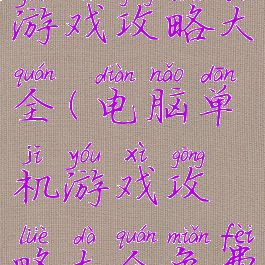 游戏攻略大
quán diàn nǎo dān
全(电脑单
jī yóu xì gōng
机游戏攻
lüè dà quán miǎn fèi
略大全免费